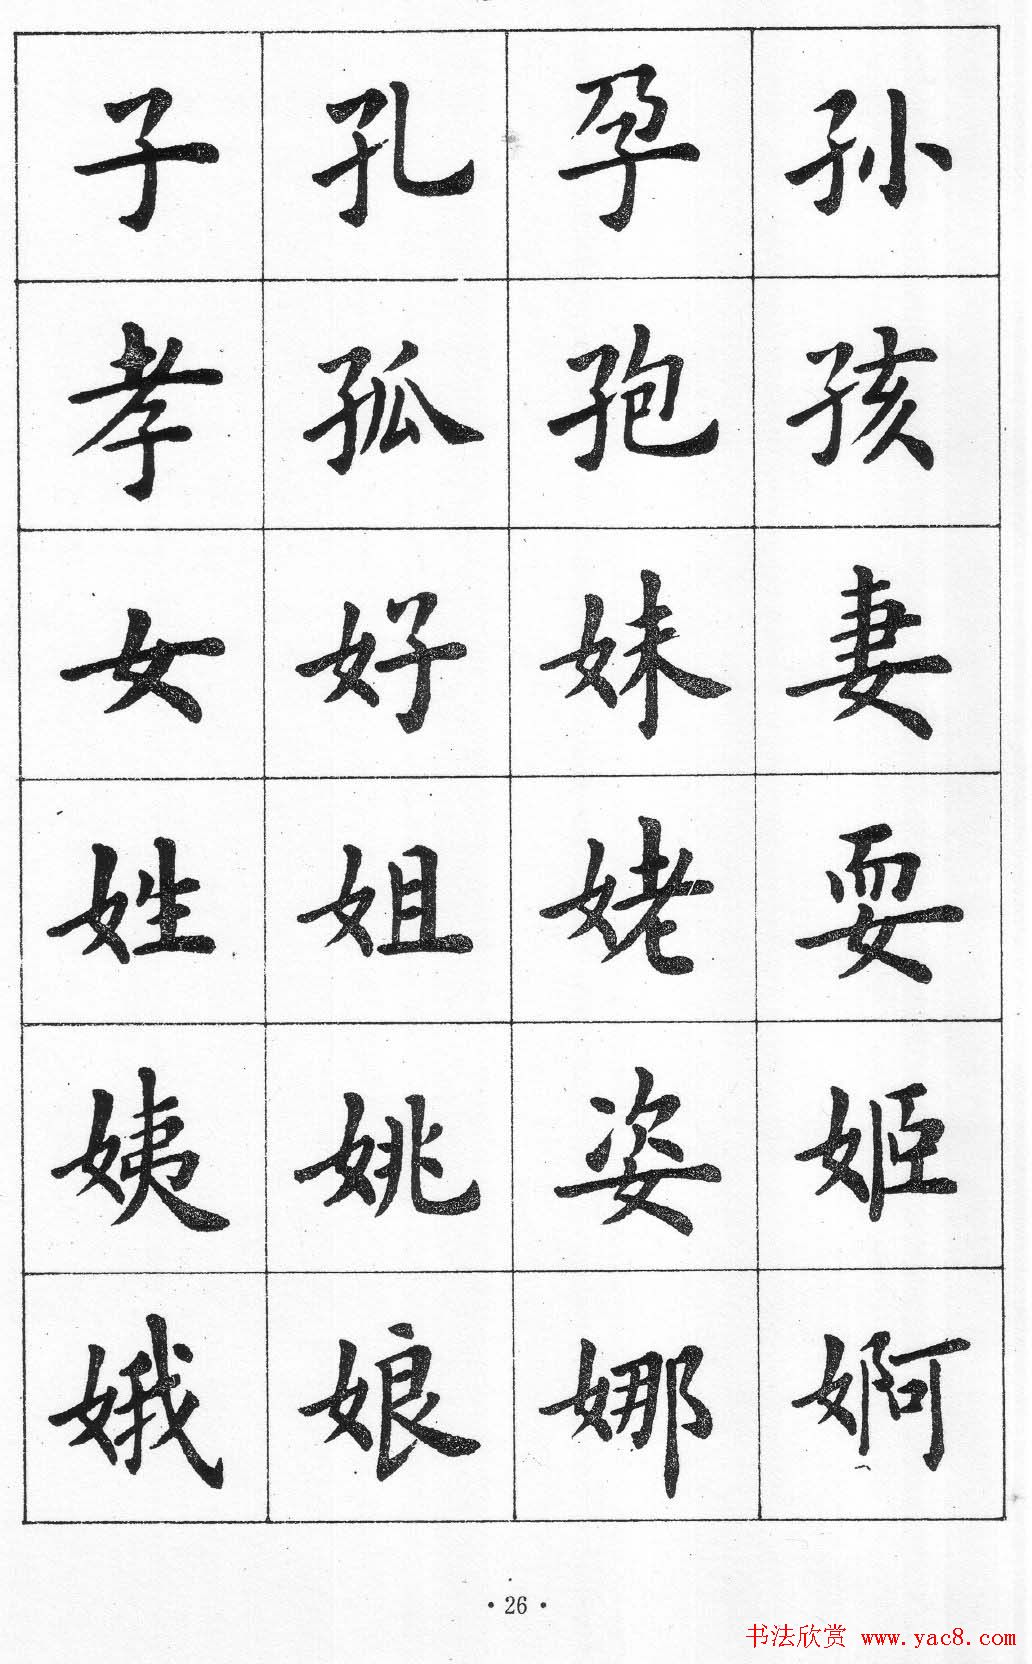 子 孔 孕 孙
孝 孤 孢 孩
女 好 妹 妻
姓 姐 姥 耍
姨 姚 姿 姬
娥 娘 娜 婀
·26·
书法欣赏 www.yac8.com